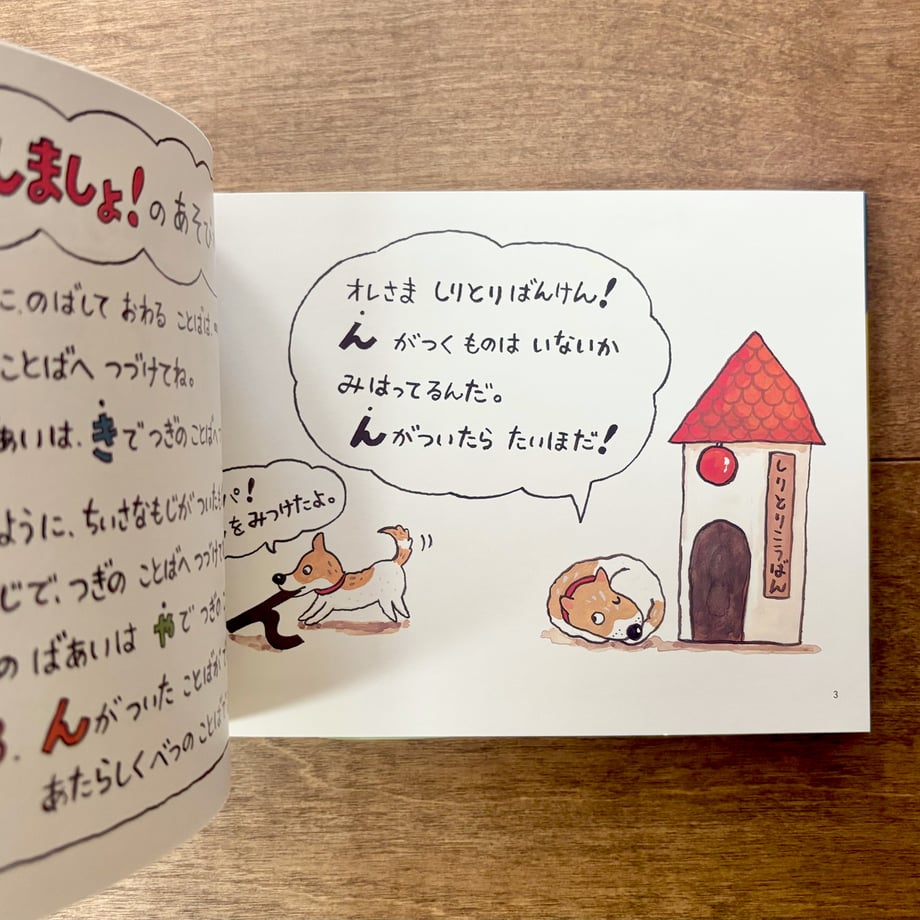 しましょ!のあそび
こ、のばして おわる ことばは、
ことばへ つづけてね。
あいは、きでつぎのことばへ
ように、ちいさなもじがついた
じで、つぎの ことばへ つづけて
の ばあいは やでつぎの
3. んがついた ことばが
あたらしくべつのことば
オレさま しりとりばんけん!
ん がつく ものは いないか
みはってるんだ。
んがついたら たいほだ!
パ!
をみつけたよ。
しりとりこうばん
3